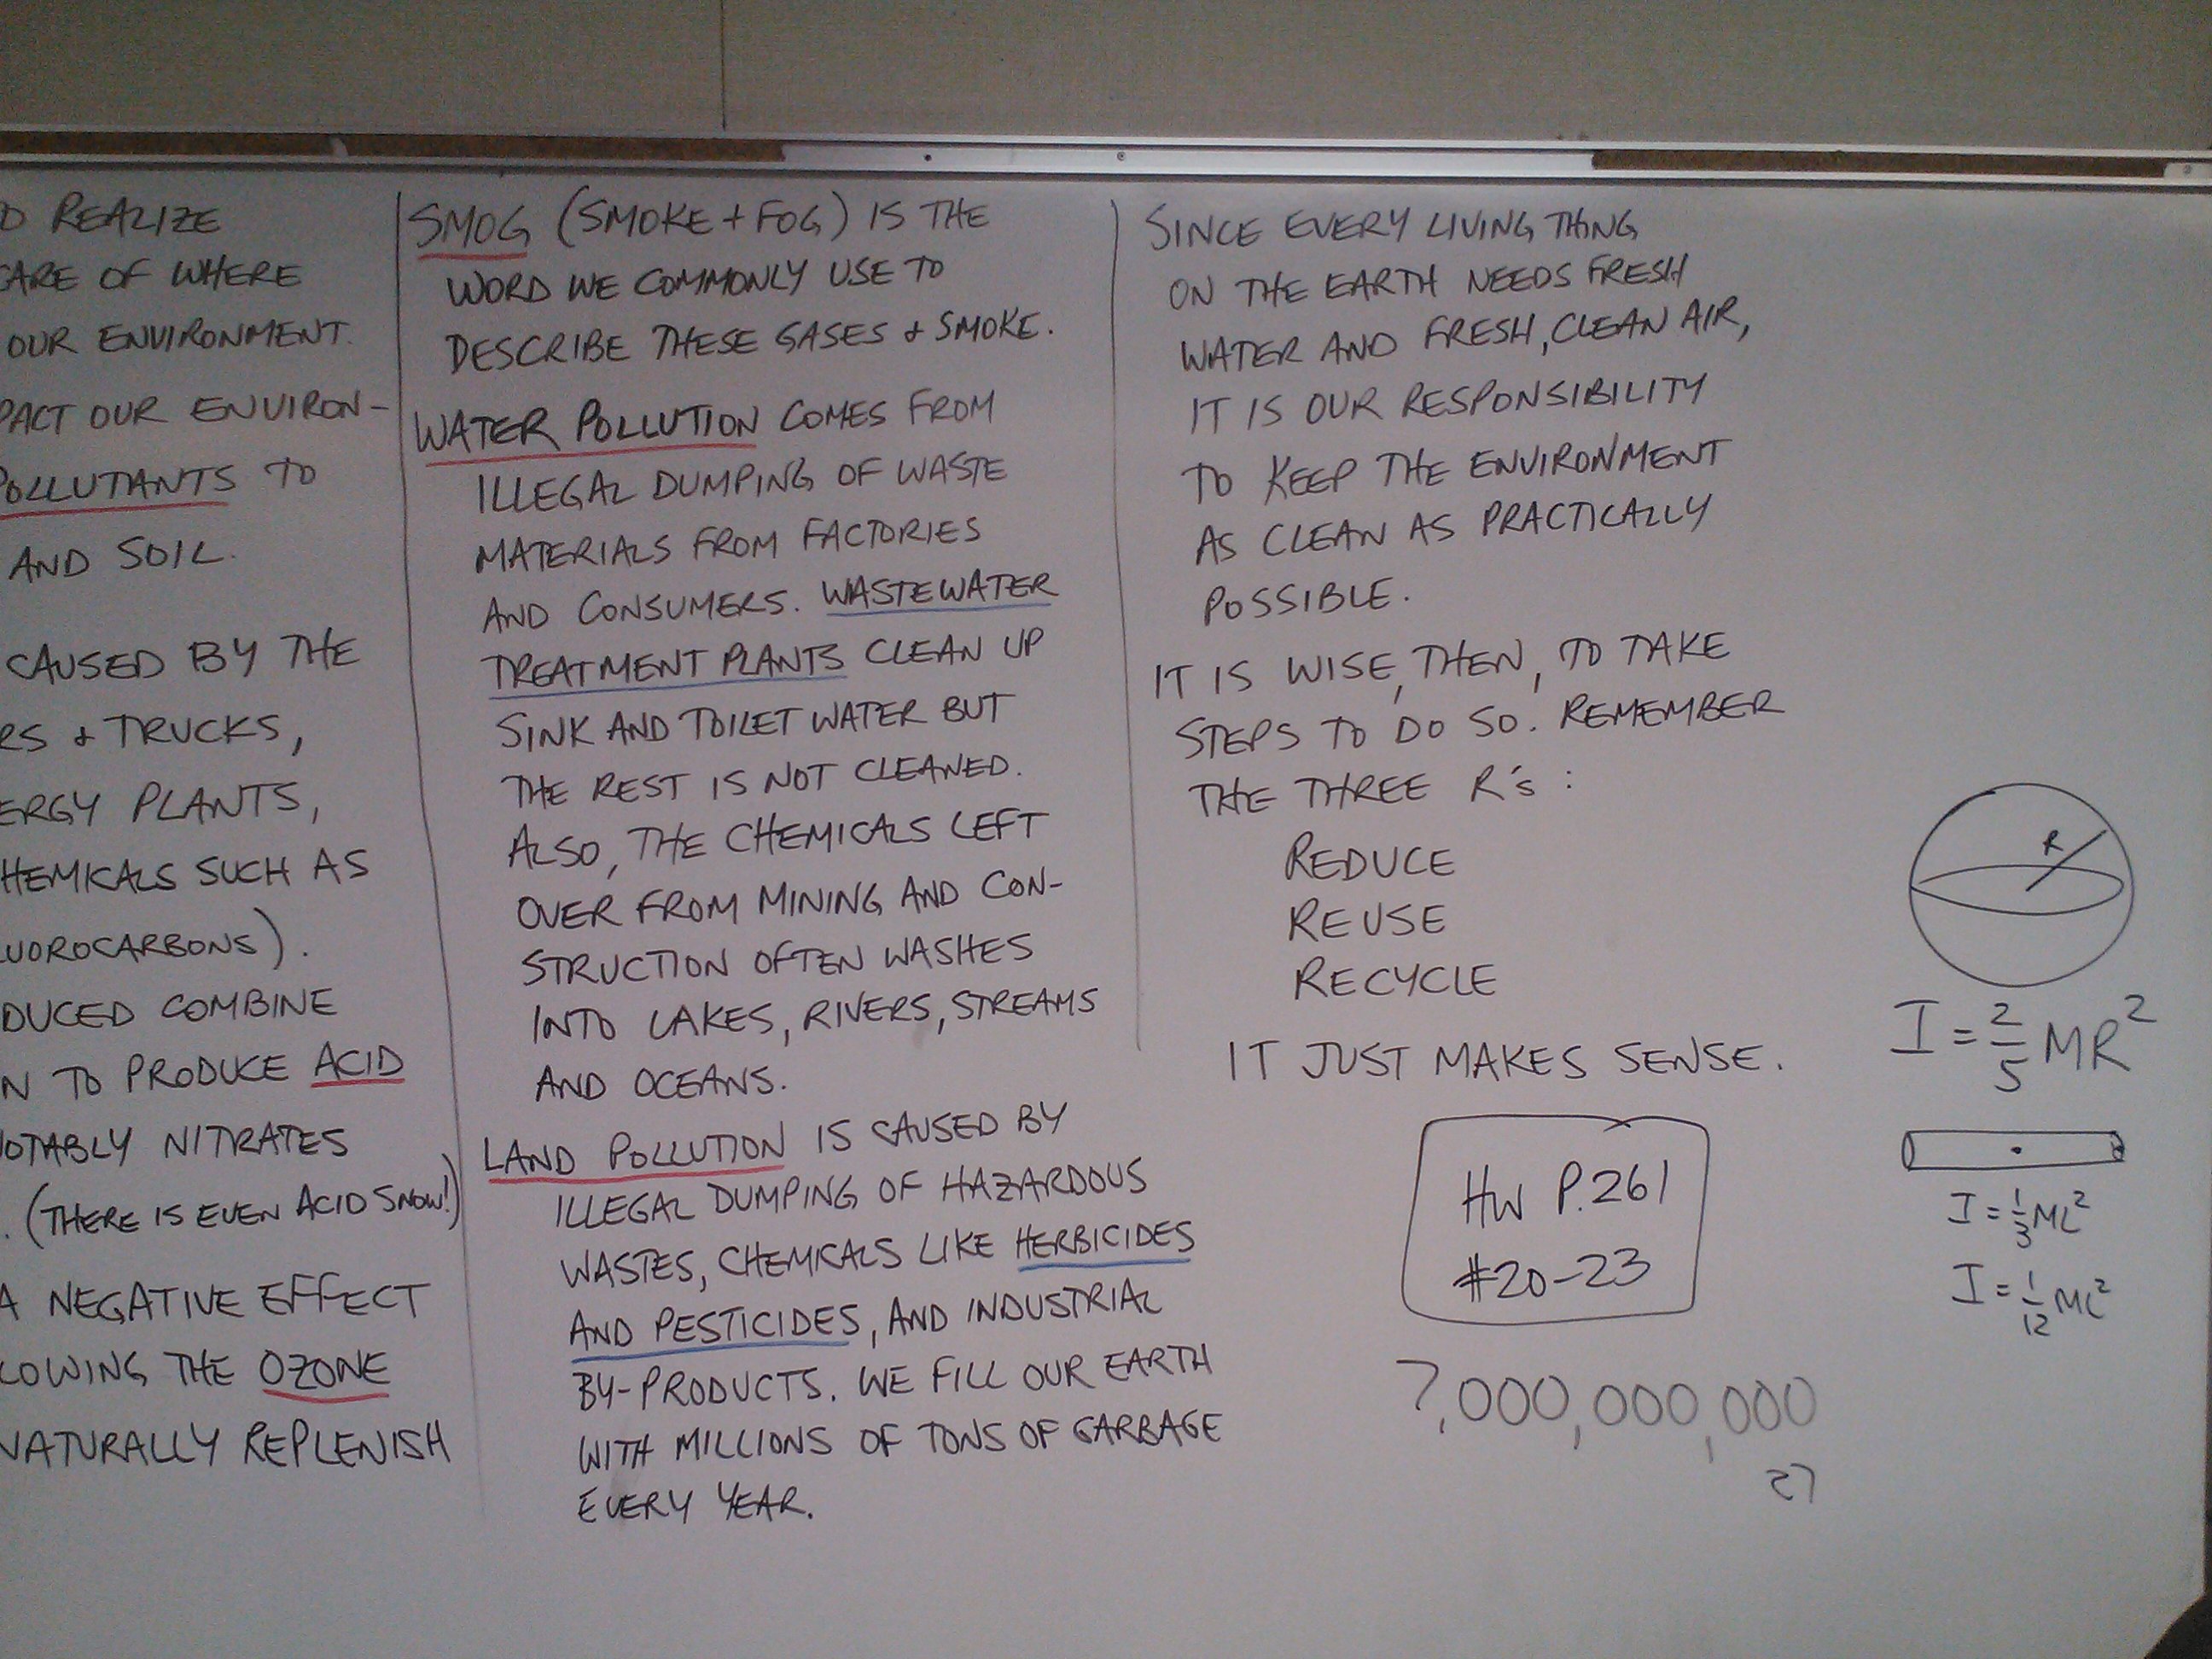 D REALIZE
CARE OF WHERE
OUR ENVIRONMENT.
PACT OUR ENVIRON-
POLLUTANTS TO
AND SOIL.
CAUSED BY THE
RS + TRUCKS,
ERGY PLANTS,
HEMICALS SUCH AS
UOROCARBONS).
DUCED COMBINE
N TO PRODUCE ACID
OTABLY NITRATES
. (THERE IS EVEN ACID SNOW!)
A NEGATIVE EFFECT
LOWING THE OZONE
NATURALLY REPLENISH
SMOG (SMOKE + FOG) IS THE
WORD WE COMMONLY USE TO
DESCRIBE THESE GASES + SMOKE.
WATER POLLUTION COMES FROM
ILLEGAL DUMPING OF WASTE
MATERIALS FROM FACTORIES
AND CONSUMERS. WASTEWATER
TREATMENT PLANTS CLEAN UP
SINK AND TOILET WATER BUT
THE REST IS NOT CLEANED.
ALSO, THE CHEMICALS LEFT
OVER FROM MINING AND CON-
STRUCTION OFTEN WASHES
INTO LAKES, RIVERS, STREAMS
AND OCEANS.
LAND POLLUTION IS CAUSED BY
ILLEGAL DUMPING OF HAZARDOUS
WASTES, CHEMICALS LIKE HERBICIDES
AND PESTICIDES, AND INDUSTRIAL
BY-PRODUCTS. WE FILL OUR EARTH
WITH MILLIONS OF TONS OF GARBAGE
EVERY YEAR.
SINCE EVERY LIVING THING
ON THE EARTH NEEDS FRESH
WATER AND FRESH, CLEAN AIR,
IT IS OUR RESPONSIBILITY
TO KEEP THE ENVIRONMENT
AS CLEAN AS PRACTICALLY
POSSIBLE.
IT IS WISE, THEN, TO TAKE
STEPS TO DO SO. REMEMBER
THE THREE R's :
REDUCE
REUSE
RECYCLE
IT JUST MAKES SENSE.
HW P.261
#20-23
7,000,000,000
27
R
I = 2/5 MR²
I = 1/3 ML²
I = 1/12 ML²